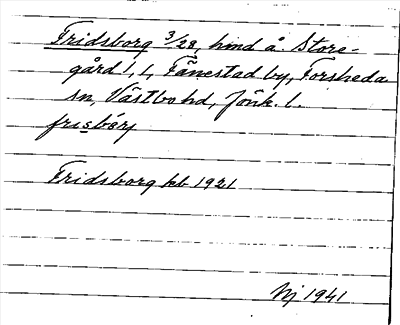 Fridsborg 3/28, hmd å. Store-
gård 1, 1, Fänestad by, Forsheda
sn, Västbo hd, Jönk. l.
frisbórj
Fridsborg kb 1921
Nj 1941